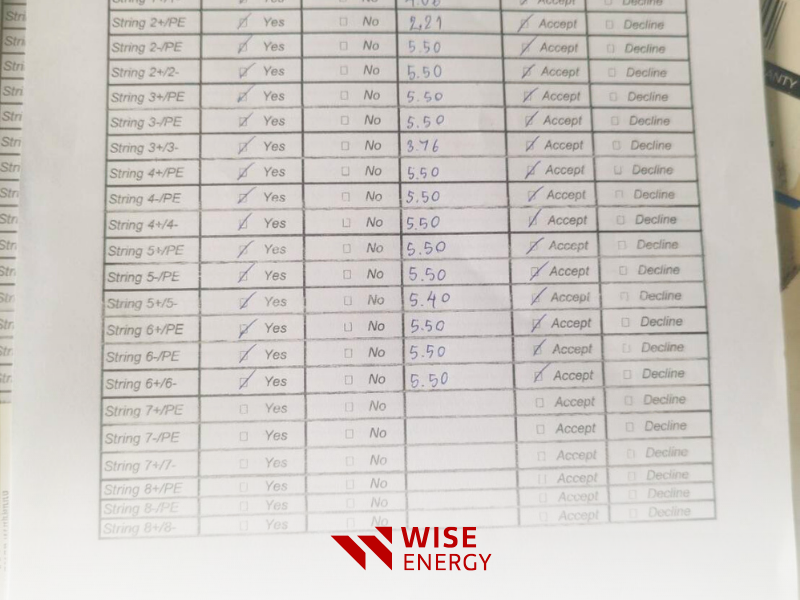 String 2+/PE Yes No 2,21 Accept Decline
String 2-/PE Yes No 5.50 Accept Decline
String 2+/2- Yes No 5.50 Accept Decline
String 3+/PE Yes No 5.50 Accept Decline
String 3-/PE Yes No 5.50 Accept Decline
String 3+/3- Yes No 3.76 Accept Decline
String 4+/PE Yes No 5.50 Accept Decline
String 4-/PE Yes No 5.50 Accept Decline
String 4+/4- Yes No 5.50 Accept Decline
String 5+/PE Yes No 5.50 Accept Decline
String 5-/PE Yes No 5.50 Accept Decline
String 5+/5- Yes No 5.40 Accept Decline
String 6+/PE Yes No 5.50 Accept Decline
String 6-/PE Yes No 5.50 Accept Decline
String 6+/6- Yes No 5.50 Accept Decline
String 7+/PE Yes No Accept Decline
String 7-/PE Yes No Accept Decline
String 7+/7- Yes No Accept Decline
String 8+/PE Yes No Accept Decline
String 8-/PE Yes No Accept Decline
String 8+/8- Yes No Accept Decline
WISE
ENERGY